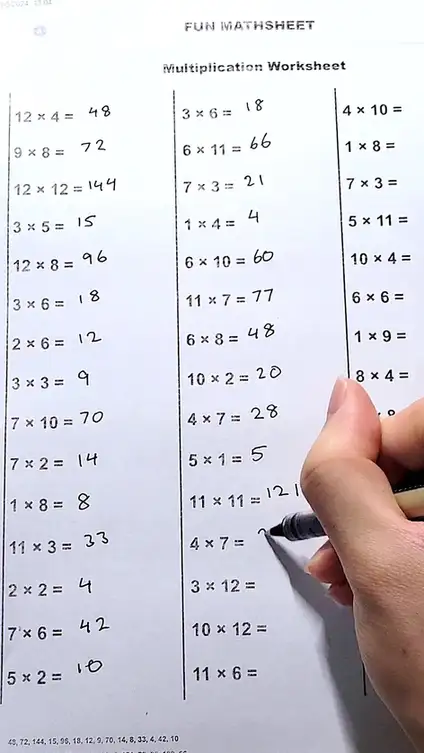 FUN MATHSHEET
Multiplication Worksheet
12 × 4 = 48
9 × 8 = 72
12 × 12 = 144
3 × 5 = 15
12 × 8 = 96
3 × 6 = 18
2 × 6 = 12
3 × 3 = 9
7 × 10 = 70
7 × 2 = 14
1 × 8 = 8
11 × 3 = 33
2 × 2 = 4
7 × 6 = 42
5 × 2 = 10
3 × 6 = 18
6 × 11 = 66
7 × 3 = 21
1 × 4 = 4
6 × 10 = 60
11 × 7 = 77
6 × 8 = 48
10 × 2 = 20
4 × 7 = 28
5 × 1 = 5
11 × 11 = 121
4 × 7 =
3 × 12 =
10 × 12 =
11 × 6 =
4 × 10 =
1 × 8 =
7 × 3 =
5 × 11 =
10 × 4 =
6 × 6 =
1 × 9 =
8 × 4 =
48, 72, 144, 15, 96, 18, 12, 9, 70, 14, 8, 33, 4, 42, 10